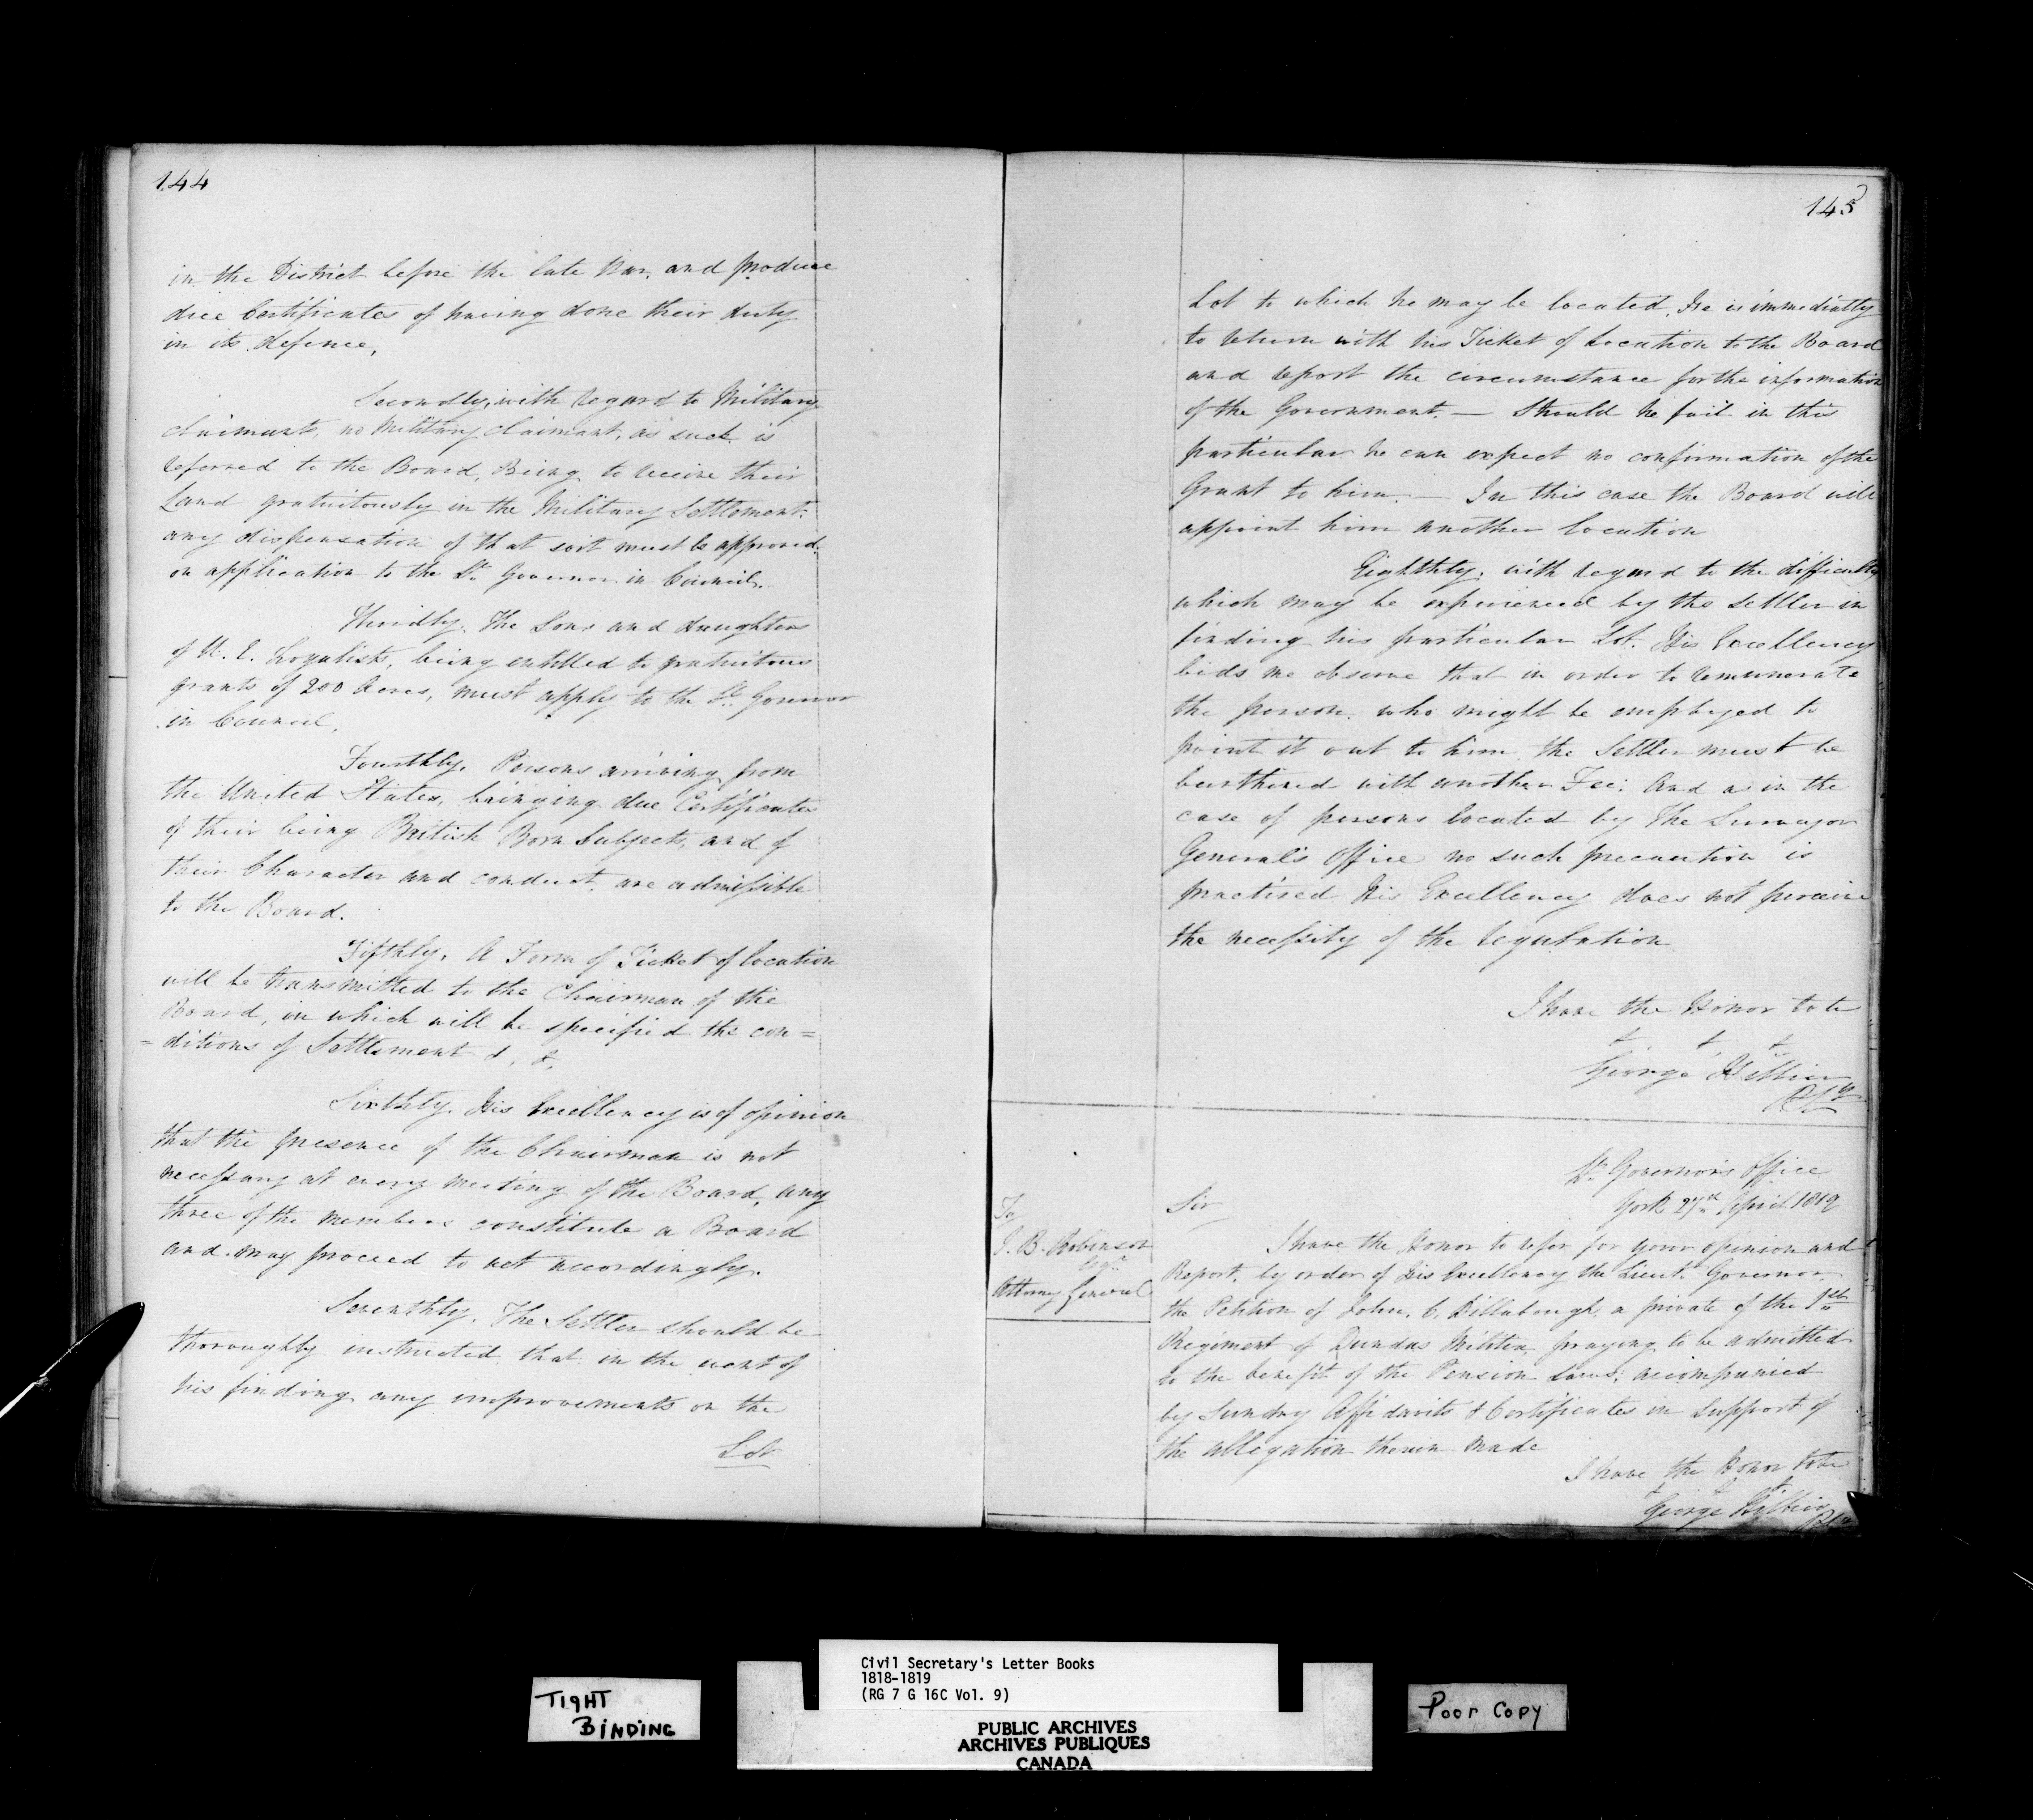 144
in the District before the late War, and produce
due Certificates of having done their duty
in its defence,
Secondly, with regard to Military
claimants, no Military claimant, as such is
referred to the Board, Being to receive their
Land gratuitously in the Military Settlement:
any dispensation of that sort must be approved
on application to the Lt. Governor in Council.
Thirdly. The Sons and daughters
of U. E. Loyalists, being entitled to gratuitous
grants of 200 Acres, must apply to the Lt. Governor
in Council,
Fourthly. Persons arriving from
the United States, bringing due Certificates
of their being British Born Subjects, and of
their Character and conduct, are admissible
to the Board.
Fifthly. A Form of Ticket of location
will be transmitted to the Chairman of the
Board, in which will be specified the con=
=ditions of Settlement &, &,
Sixthly. His Excellency is of opinion
that the presence of the Chairman is not
necessary at every meeting of the Board, any
three of the members constitute a Board
and may proceed to act accordingly.
Seventhly. The Settler should be
thoroughly instructed that in the event of
his finding any improvements on the
Lot
145
Lot to which he may be located, He is immediatly
to return with his Ticket of Location to the Board
and report the circumstance for the information
of the Government. — Should he fail in this
particular he can expect no confirmation of the
Grant to him. — In this case the Board will
appoint him another location
Eighthly; with regard to the difficulty
which may be experienced by the settler in
finding his particular Lot. His Excellency
bids me observe that in order to remunerate
the person who might be employed to
point it out to him the Settler must be
burthened with another Fee; And as in the
case of persons located by The Surveyor
General's Office no such precaution is
practised His Excellency does not perceive
the necessity of the regulation
I have the Honor to be
& & &
George Hillier
P S
To
J. B. Robinson
Esqr
Attorney General
Lt. Governor's Office
York 27th April 1819
Sir
I have the Honor to refer for your opinion and
Report, by order of His Excellency the Lieut. Governor,
the Petition of John. C. Dillabough a private of the 1st
Regiment of Dundas Militia praying to be admitted
to the benefit of the Pension Laws; accompanied
by Sundry Affidavits & Certificates in Support of
the allegation therein made
I have the Honor to be
George Hillier
Civil Secretary's Letter Books
1818-1819
(RG 7 G 16C Vol. 9)
TIGHT
BINDING
Poor Copy
PUBLIC ARCHIVES
ARCHIVES PUBLIQUES
CANADA